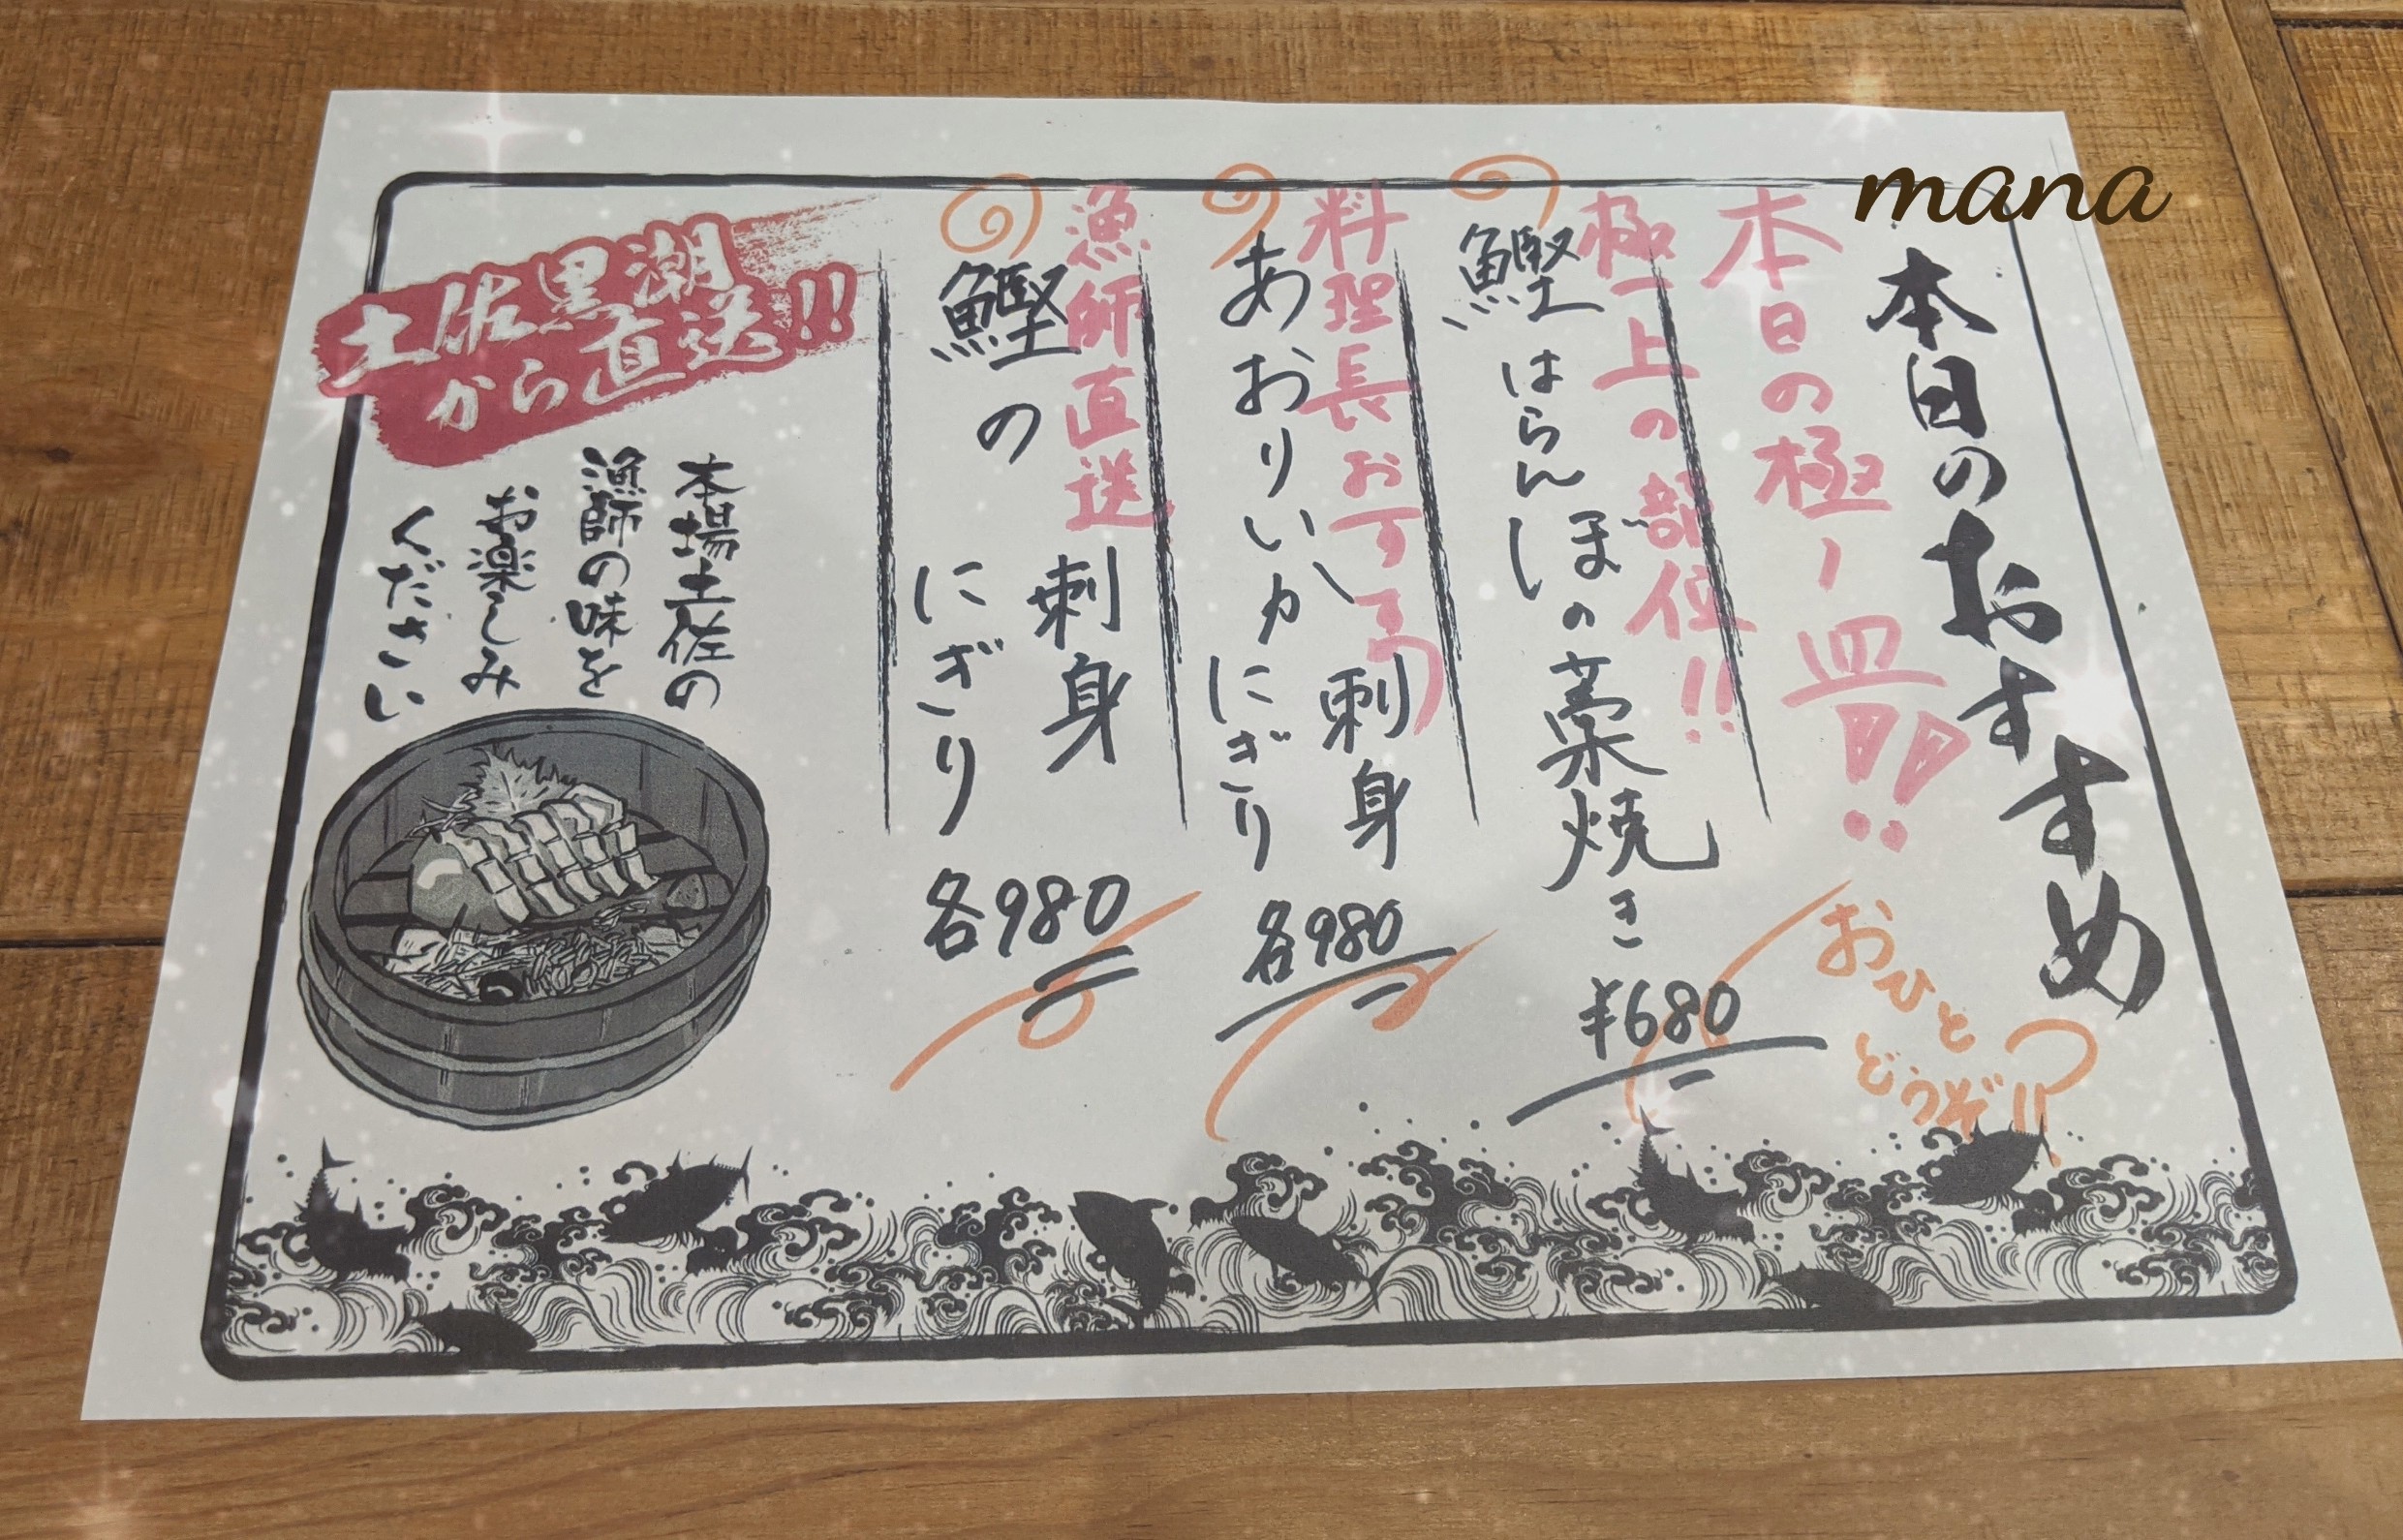 mana
本日のおすすめ
本日の極ノ皿!!
おひとつ
どうぞ!!
極上の部位!!
鰹はらんぼの藁焼き
¥680
料理長おすすめ
あおりいか 刺身
にぎり
各980
漁師直送
鰹の 刺身
にぎり
各980
土佐黒潮
から直送!!
本場土佐の
漁師の味を
お楽しみ
ください